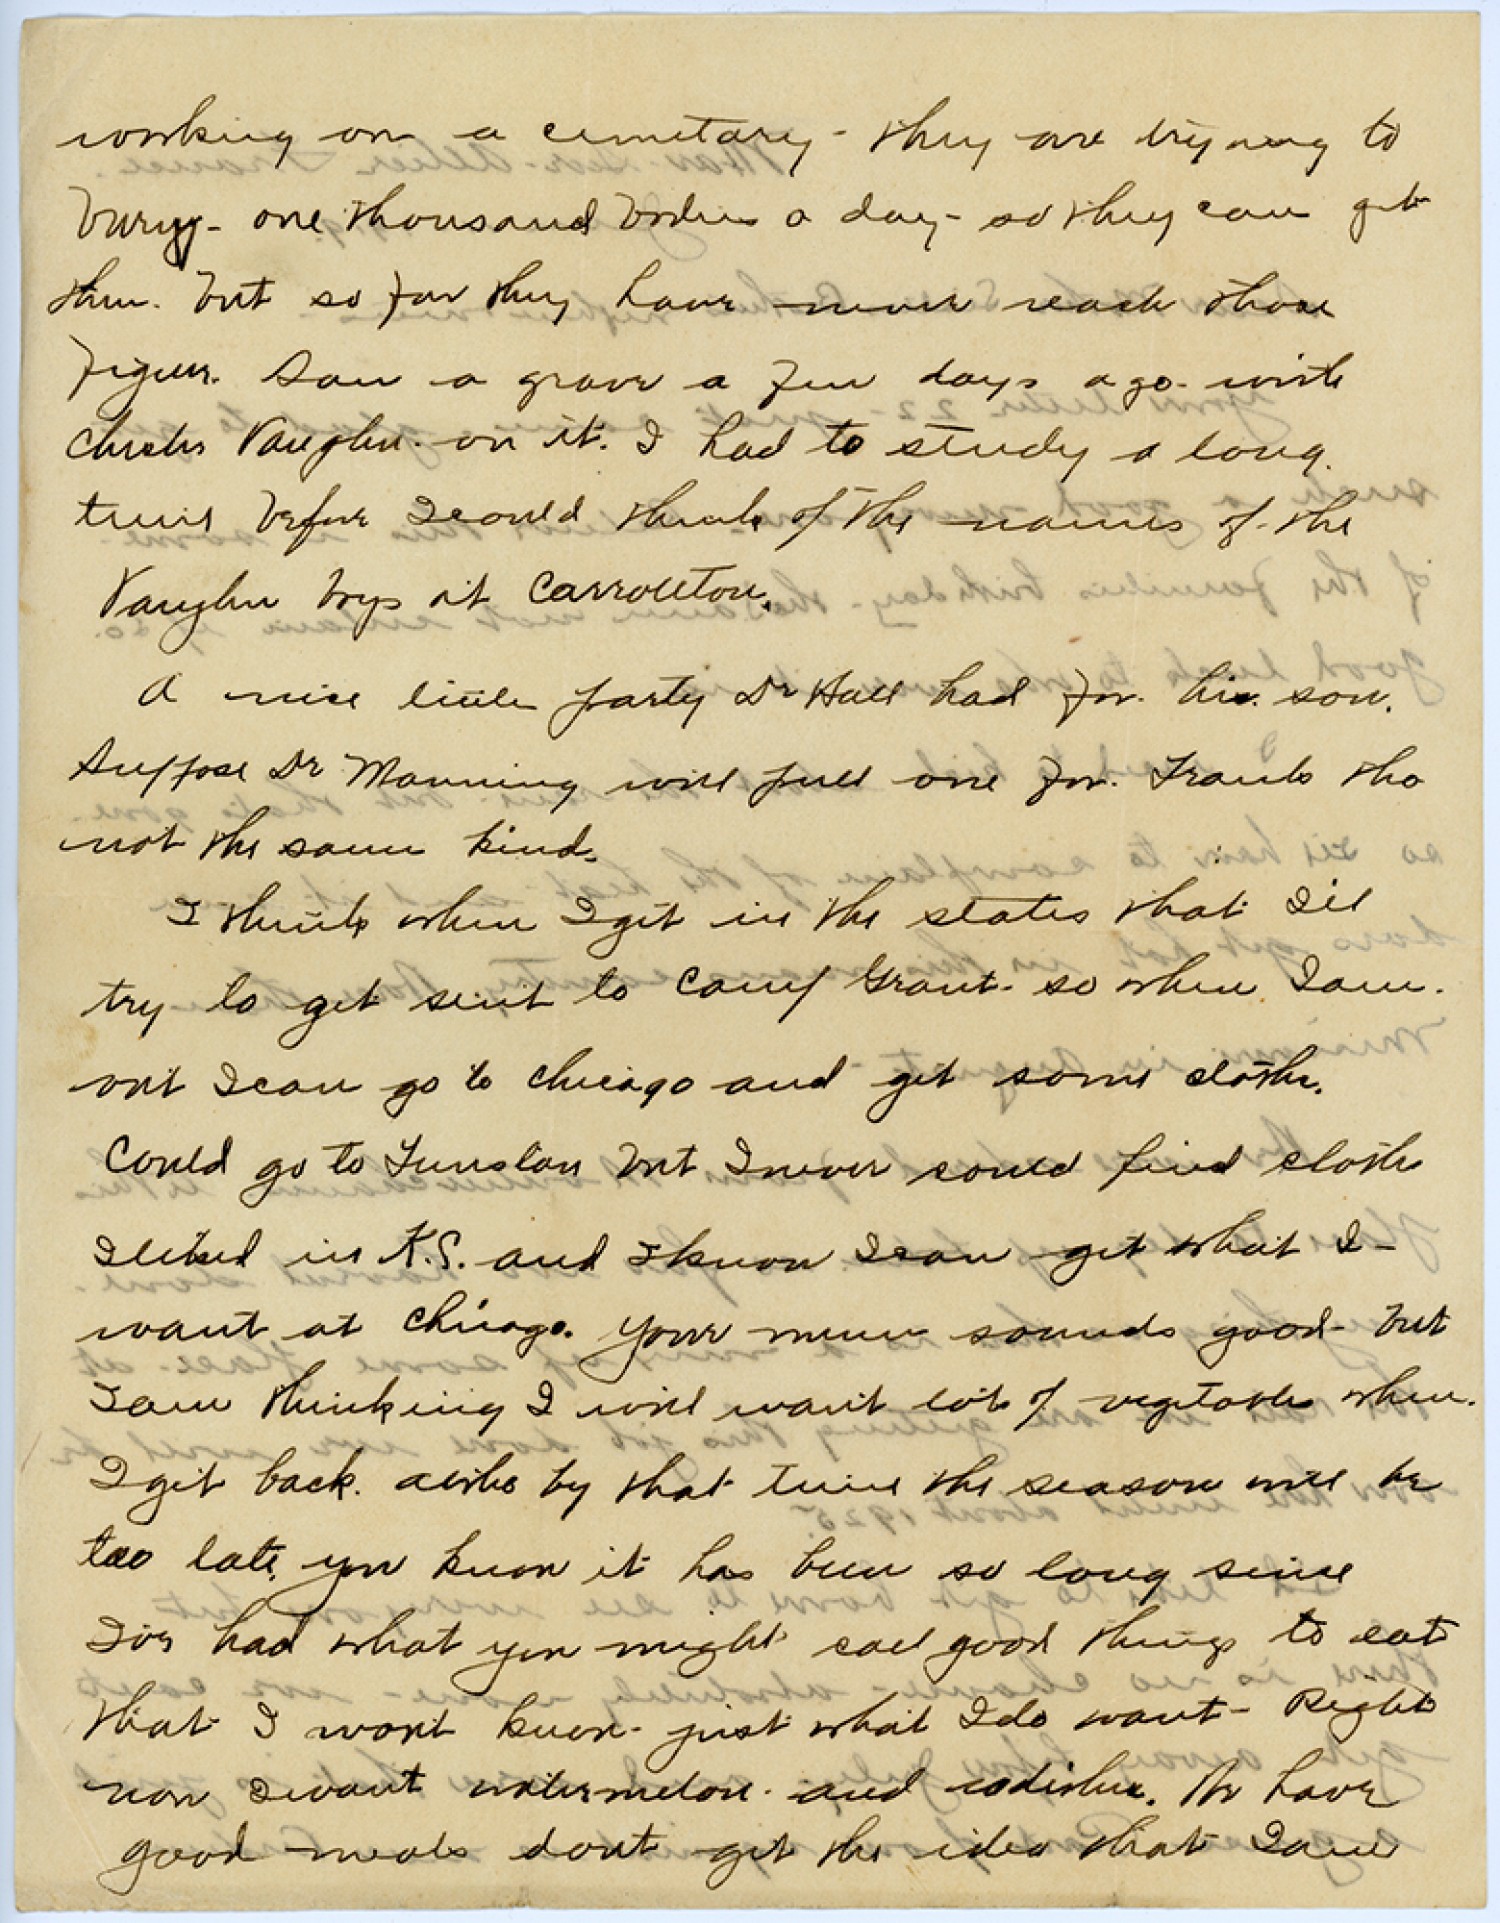 working on a cemetary - they are trying to
bury - one thousand bodies a day - so they can get
them. but so far they have never reach those
figures. Saw a grave a few days ago - with
Charles Vaughn. on it. I had to study a long.
time before I could think of the names of the
Vaughn boys at Carrollton.
A nice little party Dr Hall had for his son.
Suppose Dr Manning will pull one for. Frank tho
not the same kind.
I think when I get in the states that I'll
try to get sent to Camp Grant - so when I am.
out I can go to Chicago and get some clothes.
Could go to Funston but I never could find clothes
I liked in K.S. and I know I can get what I -
want at Chicago. your menu sounds good - but
I am thinking I will want lots of vegetables when.
I get back. altho by that time the season will be
too late. you know it has been so long since
I've had what you might call good things to eat
that I won't know - just what I do want - Right
now I want watermelon - and radishes. We have
good meals dont get the idea that I am